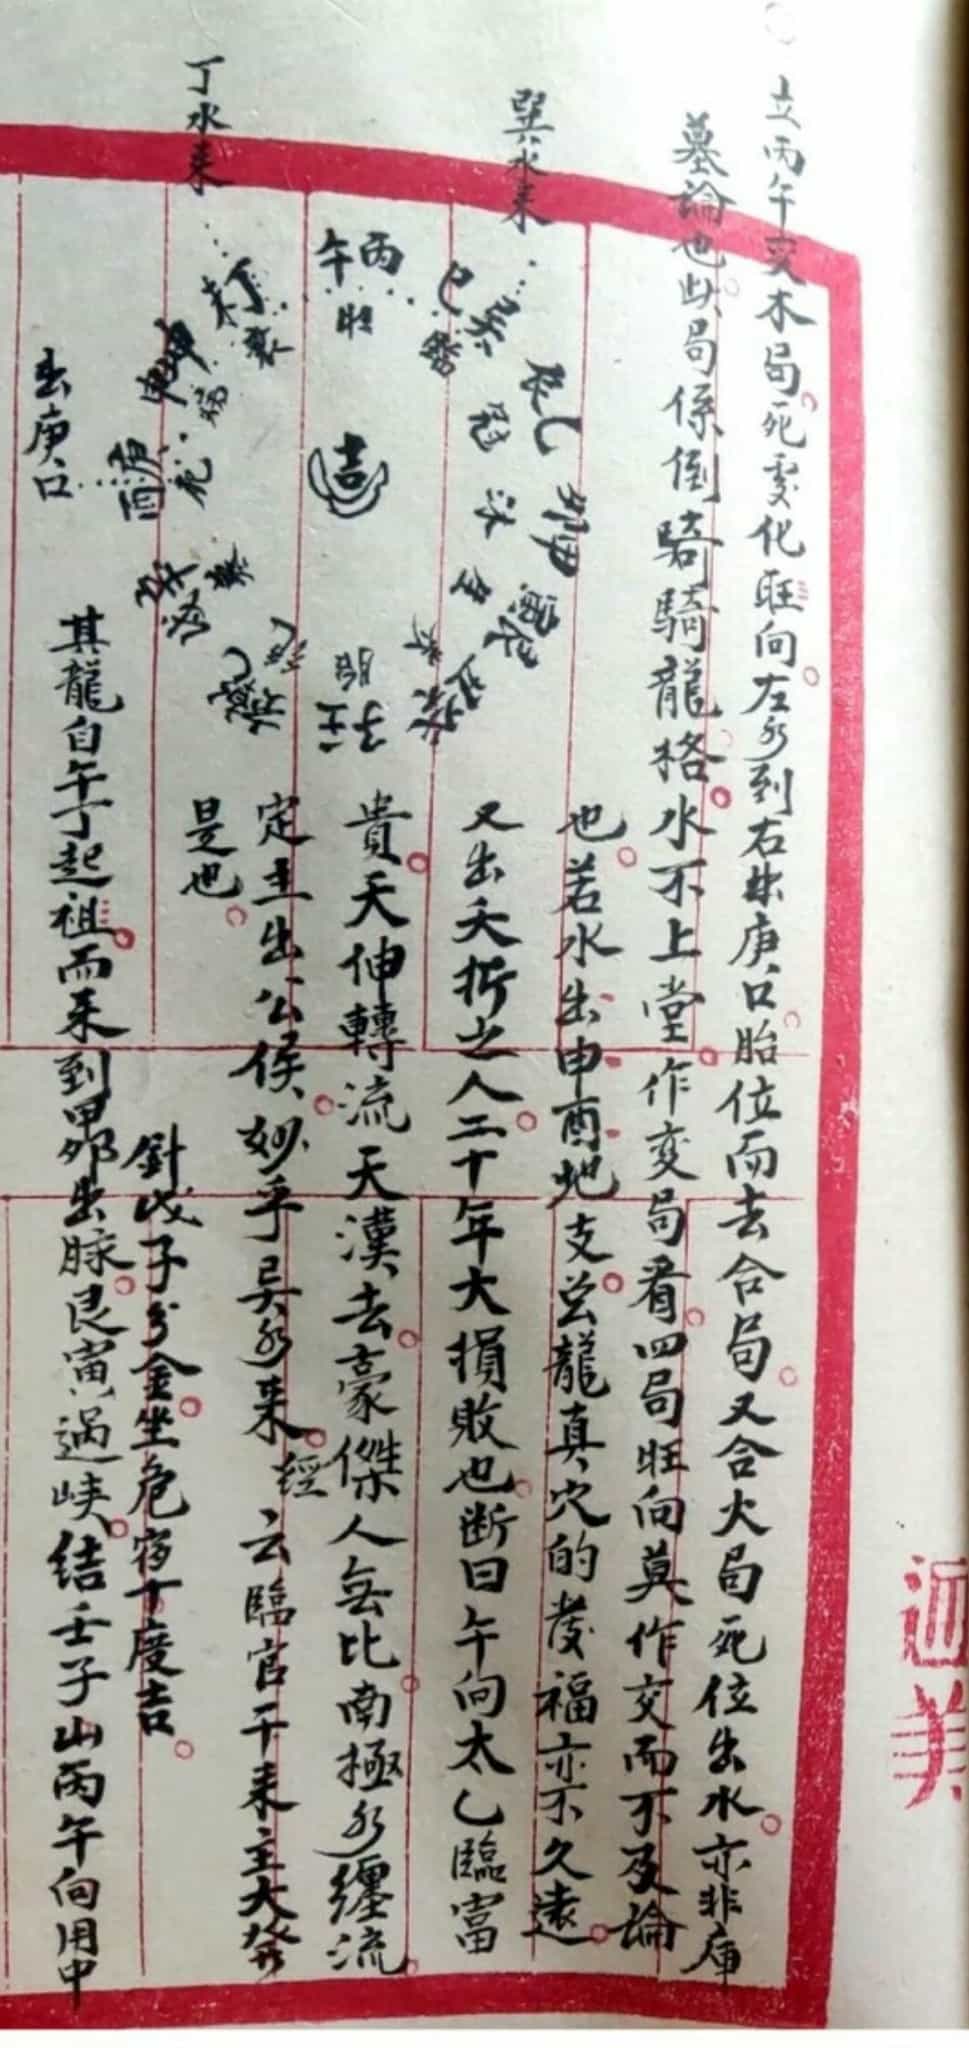 立丙午变木局死变化旺向左水到右出庚口胎位而去合局又合火局死位出水亦非庫
墓論也此局係倒騎騎龍格水不上堂作变局看四局旺向莫作交而不及論
也若水出申酉地支总龍真穴的发福亦不久遠
又出夭折之人二十年大損敗也断曰午向太乙臨富
貴天伸轉流天漢去豪傑人無比南極水纏流
定主出公侯妙乎吴水来經云臨官干来主大発
是也
其龍自午丁起祖而来到甲卯出脉艮寅過峡结壬子山丙午向用中
針戊子分金坐危宿十度吉
巽水来
丁水来
出庚口
丙午
旺
巳
临
乙辰
冠
甲卯
沐
艮寅
生
壬子
胎
庚酉
死
丁未
衰
吉
迎美